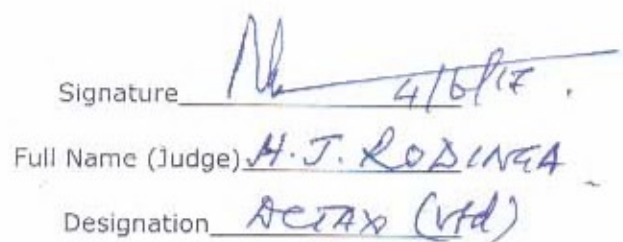 Signature 4/6/17.
Full Name (Judge) H. J. RODINGA
Designation DCTAX (rtd)